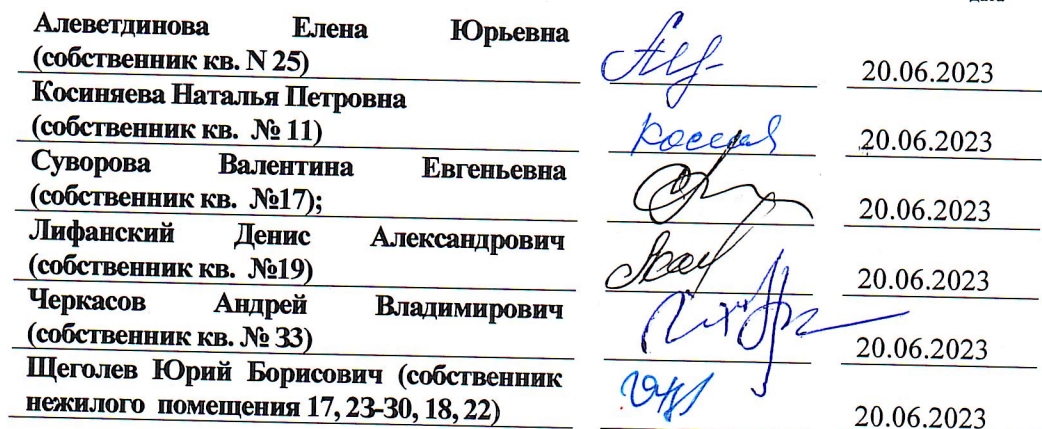 Алеветдинова Елена Юрьевна
(собственник кв. N 25)
20.06.2023
Косиняева Наталья Петровна
(собственник кв. № 11)
20.06.2023
Суворова Валентина Евгеньевна
(собственник кв. №17);
20.06.2023
Лифанский Денис Александрович
(собственник кв. №19)
20.06.2023
Черкасов Андрей Владимирович
(собственник кв. № 33)
20.06.2023
Щеголев Юрий Борисович (собственник
нежилого помещения 17, 23-30, 18, 22)
20.06.2023